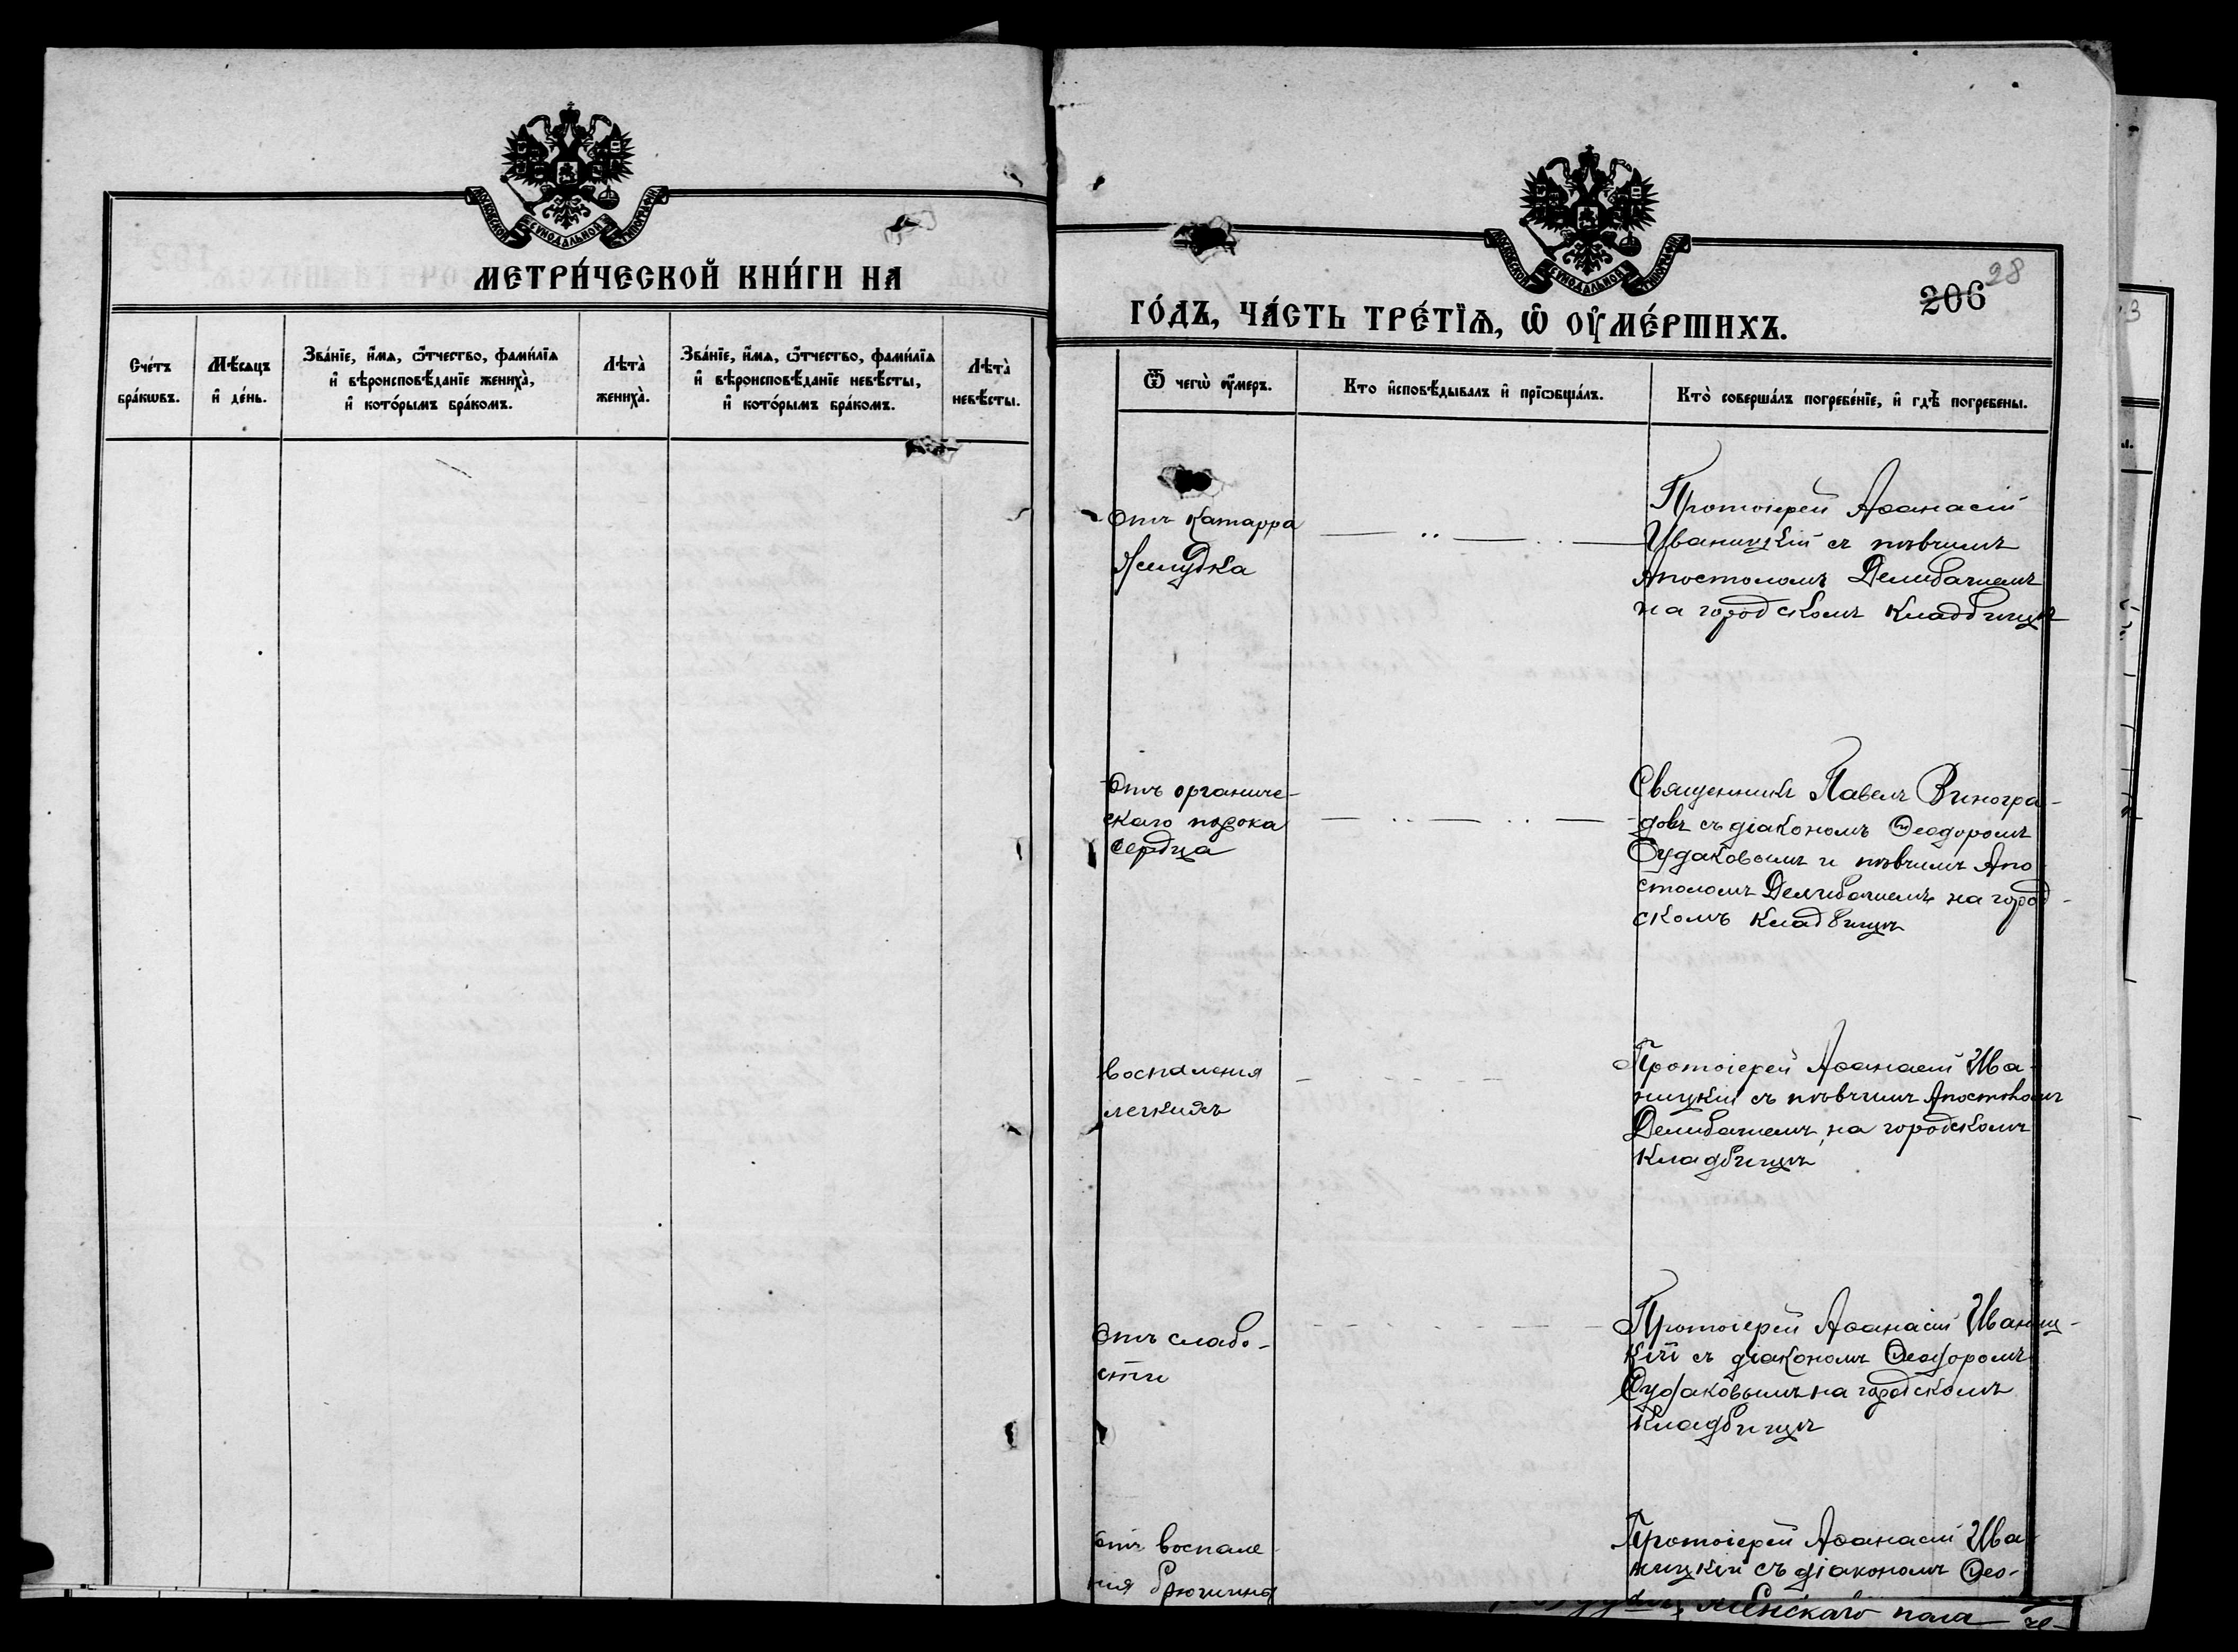 МОСКОВСКОЙ СѴНОДАЛЬНОЙ ТИПОГРАФІИ
МЕТРИ́ЧЕСКОЙ КНИ́ГИ НА
Сче́тъ
бра́кѡвъ.
Мѣ́сяцъ
и҆ де́нь.
Зва́нїе, и҆́мѧ, ѻ҆́тчество, фами́лїѧ
и҆ вѣроисповѣ́данїе жениха̀,
и҆ кото́рымъ бра́комъ.
Лѣта̀
жениха̀.
Зва́нїе, и҆́мѧ, ѻ҆́тчество, фами́лїѧ
и҆ вѣроисповѣ́данїе невѣ́сты,
и҆ кото́рымъ бра́комъ.
Лѣта̀
невѣ́сты.
МОСКОВСКОЙ СѴНОДАЛЬНОЙ ТИПОГРАФІИ
98
206
ГО́ДЪ, ЧА́СТЬ ТРЕ́ТЇѦ, Ѡ҆ ОУ҆МЕ́РШИХЪ.
Ѿ чегѡ̀ оу҆́меръ.
Кто и҆сповѣ́дывалъ и҆ прїѡбща́лъ.
Кто̀ соверша́лъ погребе́нїе, и҆ гдѣ̀ погребены.
Отъ катарра
желудка
Протоіерей Аѳанасій
Иваницкій съ пѣвчимъ
Апостоломъ Делибачіемъ
на городскомъ кладбищѣ
Отъ органиче-
скаго порока
сердца
Священникъ Павелъ Виногра-
довъ съ діакономъ Ѳеодоромъ
Судаковымъ и пѣвчимъ Апо
столомъ Делибачіемъ на город-
скомъ кладбищѣ
воспаленія
легкихъ
Протоіерей Аѳанасій Ива-
ницкій съ пѣвчимъ Апостоломъ
Делибачіемъ на городскомъ
кладбищѣ
Отъ слабо-
сти
Протоіерей Аѳанасій Иваниц-
кій съ діакономъ Ѳеодоромъ
Судаковымъ на городскомъ
кладбищѣ
отъ воспале
нія брюшины
Протоіерей Аѳанасій Ива
ницкій съ діакономъ Ѳео-
женскаго пола